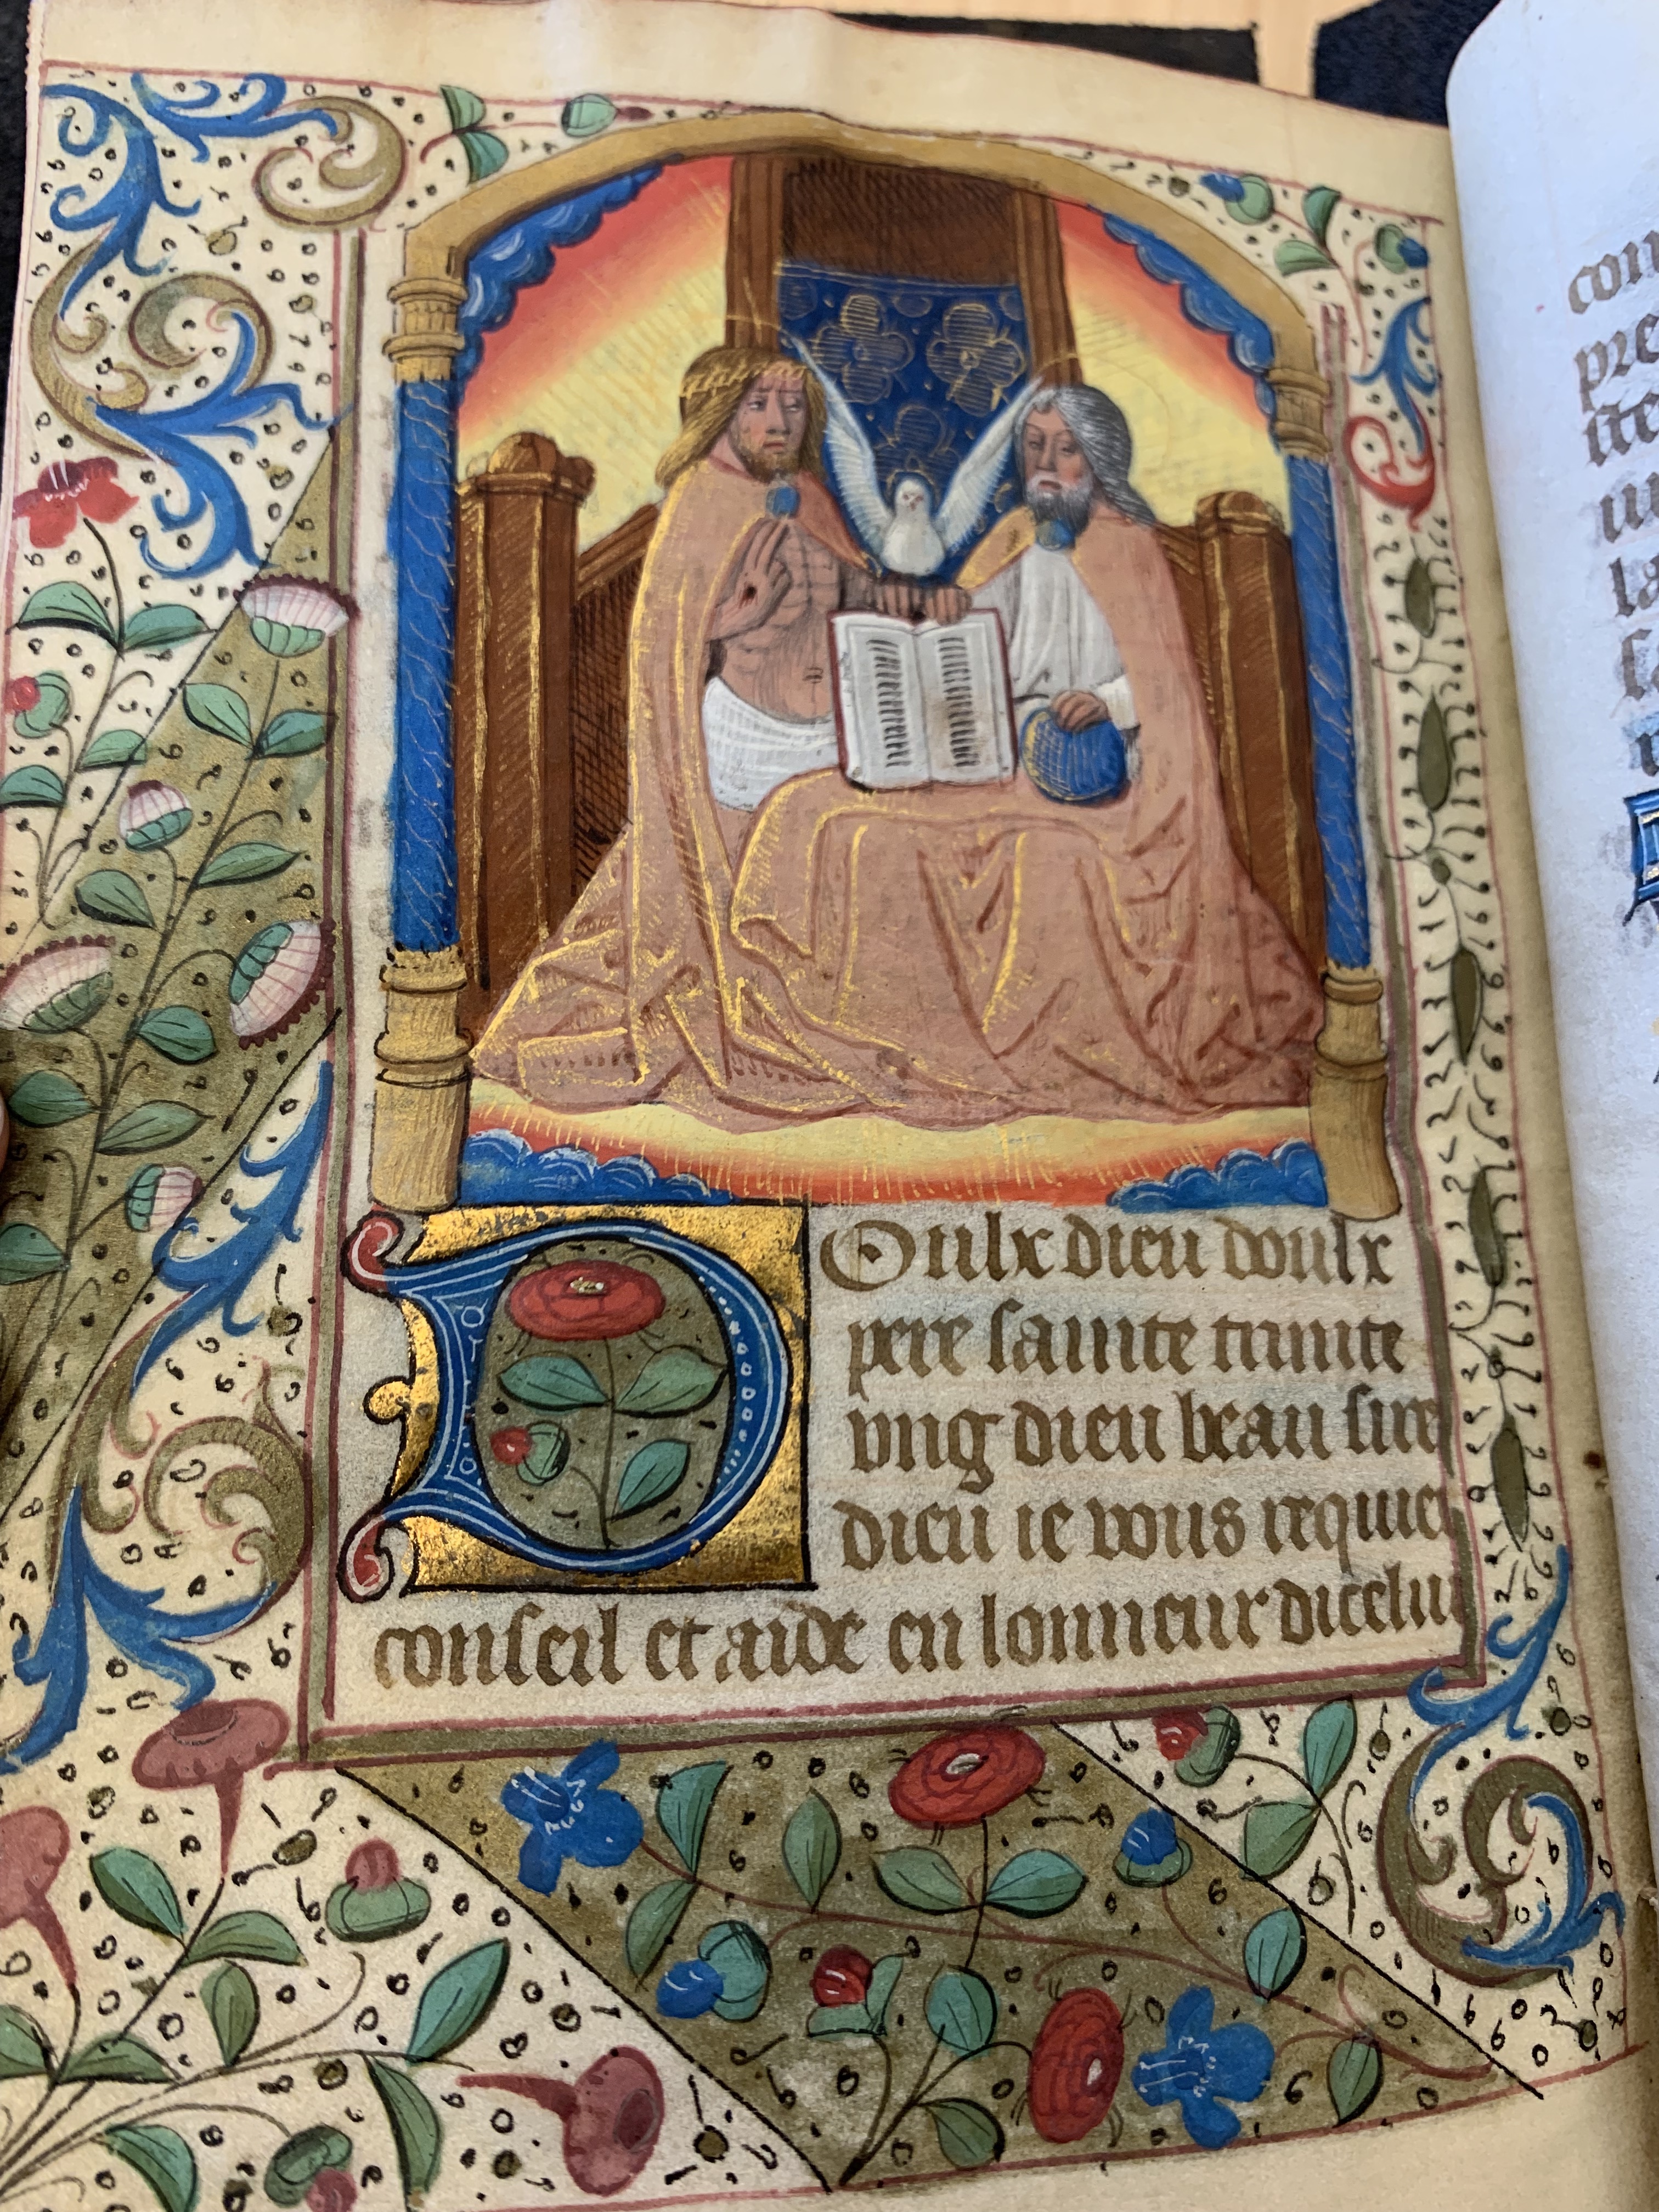 Doulx dieu doulx
pere sainte trinite
ung dieu beau sire
dieu ie vous requier
conseil et aide en lonneur dicelui
con
pre